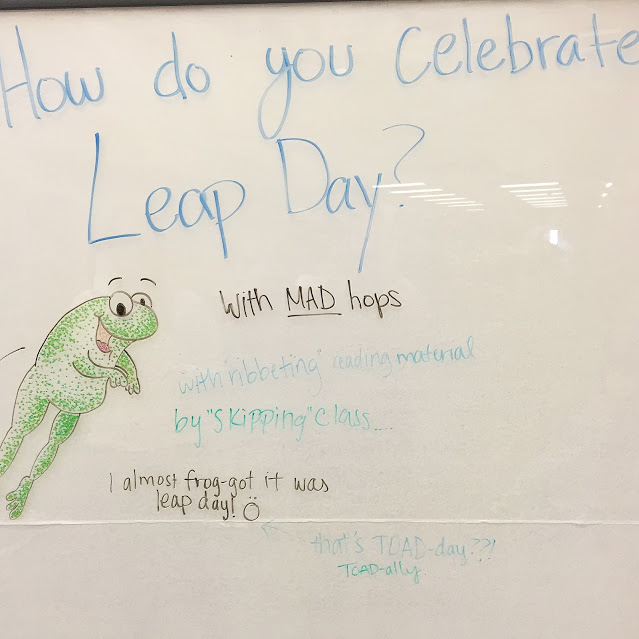 How do you Celebrate
Leap Day?
With MAD hops
with "ribbeting" reading material
by "SKipping" Class....
I almost frog-got it was
leap day!
that's TOAD-day??!
TOAD-ally.